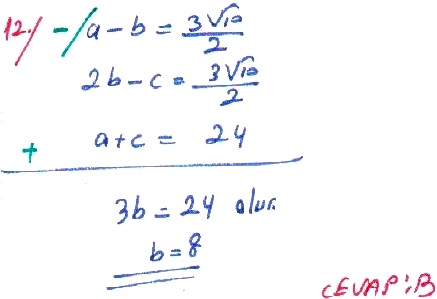 12./ -/ a - b = 3√10/2
2b - c = 3√10/2
+ a + c = 24
3b = 24 olur.
b = 8
CEVAP: B